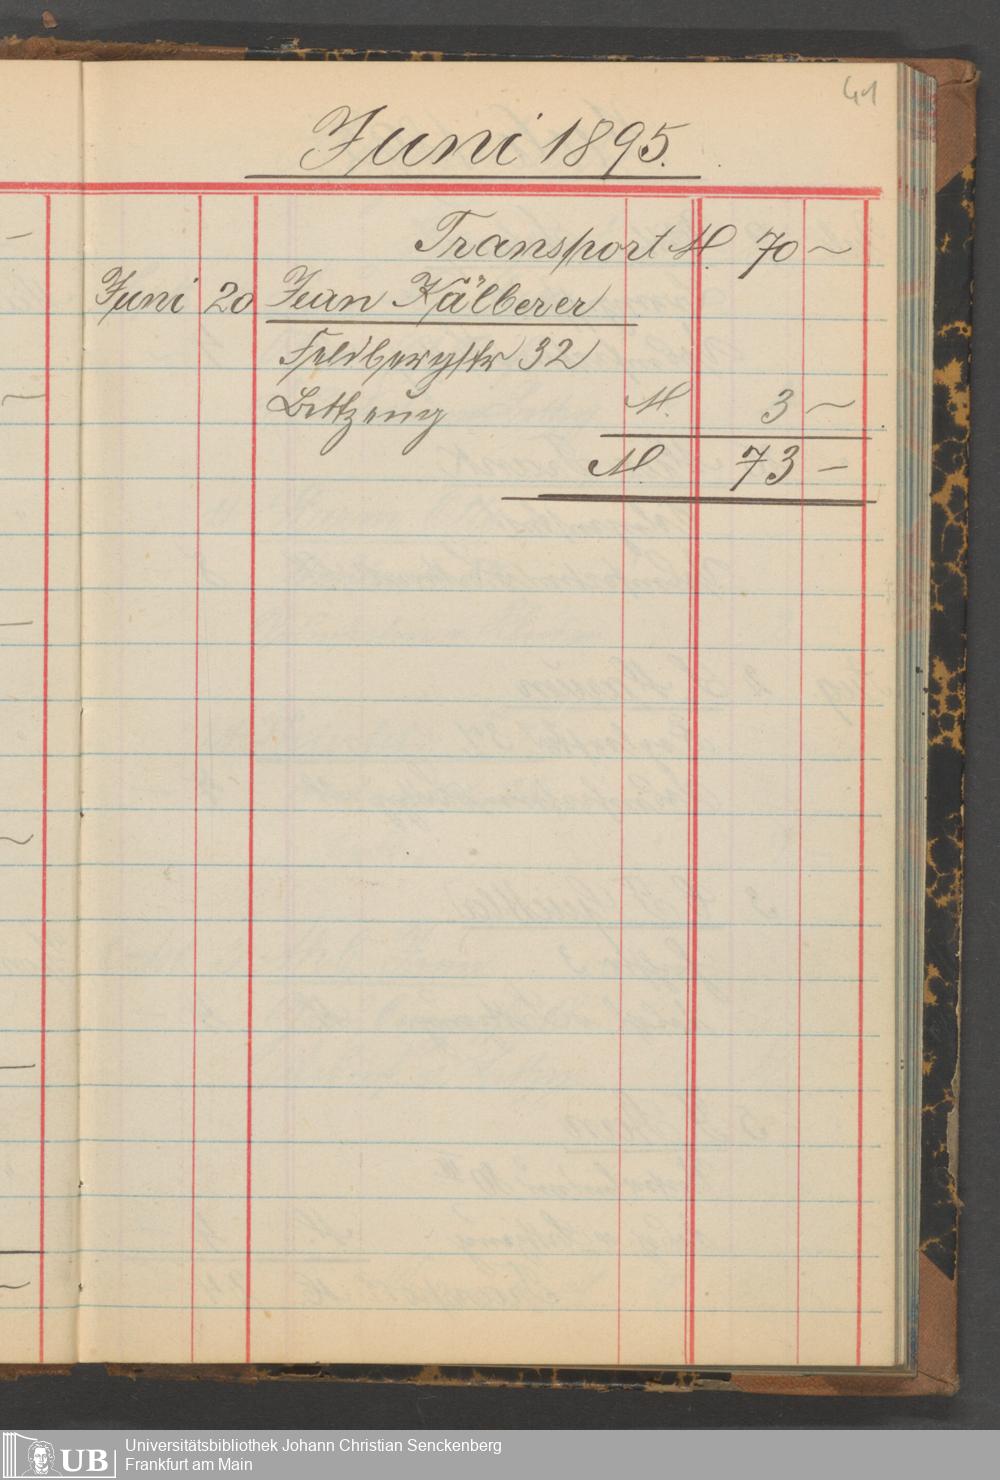 41
Juni 1895.
Transport M. 70 –
Juni 20 Jean Kälberer
Feldbergstr 32
Bettzeug M. 3 –
M. 73 –
UB Universitätsbibliothek Johann Christian Senckenberg
Frankfurt am Main